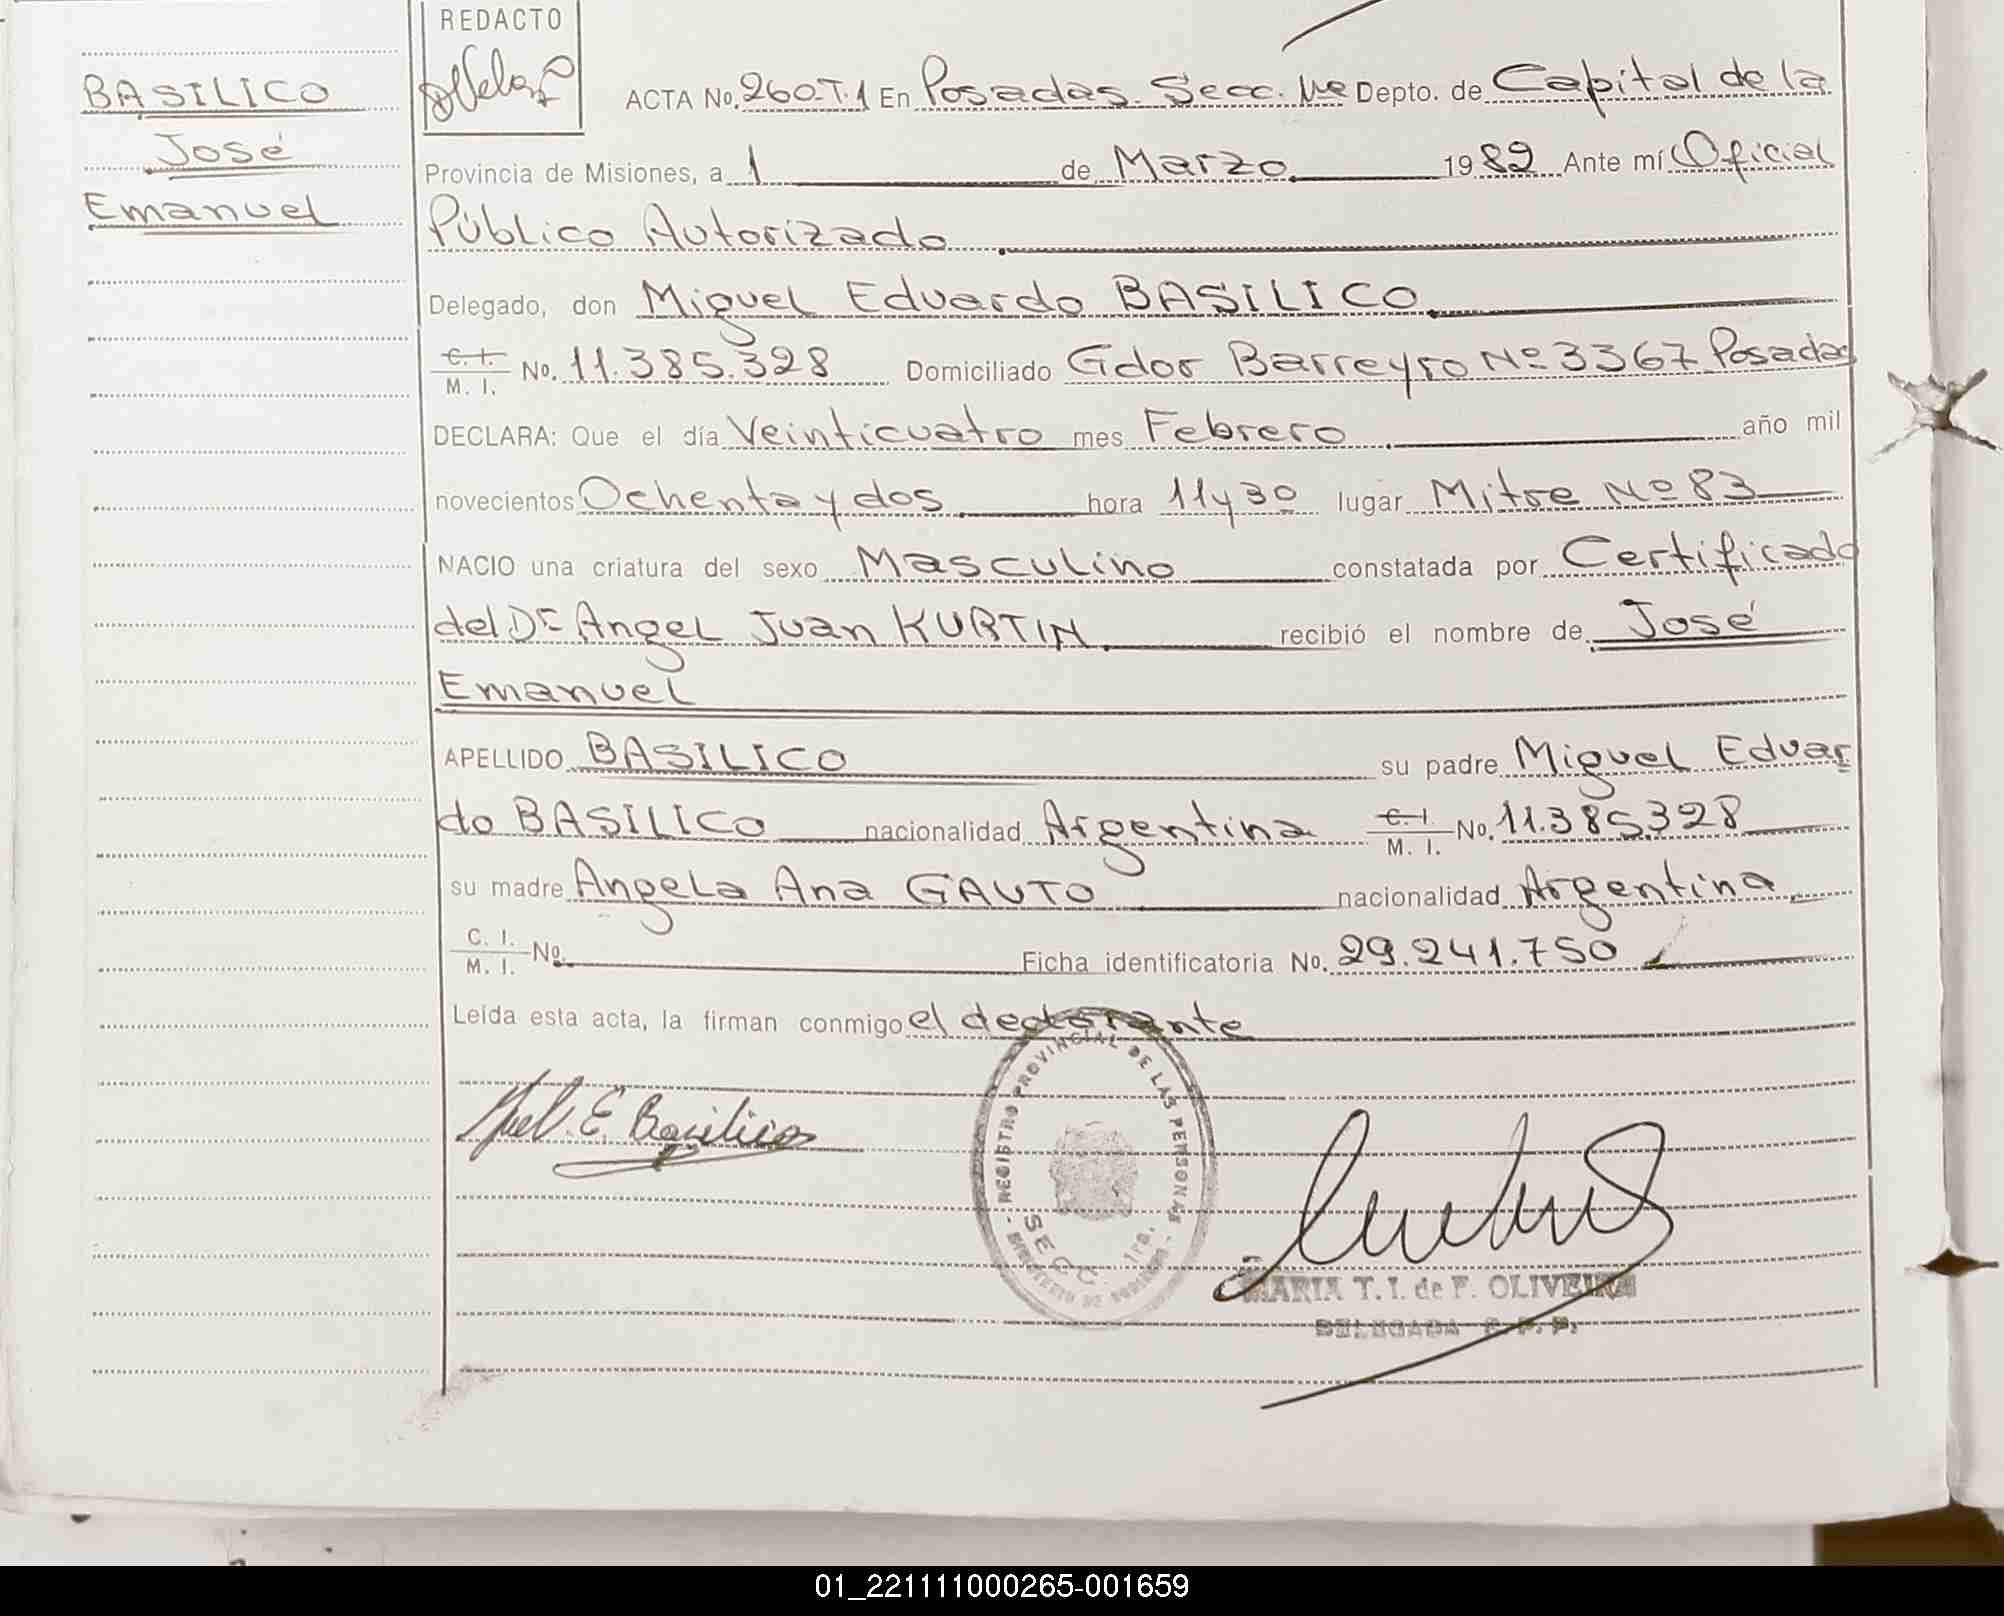 REDACTO
BASILICO
José
Emanuel
ACTA No. 260.T.1 En Posadas. Secc. 1ra Depto. de Capital de la
Provincia de Misiones, a 1 de Marzo 1982 Ante mí Oficial
Público Autorizado
Delegado, don Miguel Eduardo BASILICO
C. I. / M. I. No. 11.385.328 Domiciliado Gdor Barreyro Nº 3367 Posadas
DECLARA: Que el día Veinticuatro mes Febrero año mil
novecientos Ochenta y dos hora 11 y 30 lugar Mitre Nº 83
NACIO una criatura del sexo Masculino constatada por Certificado
del Dr Angel Juan KURTIN recibió el nombre de José
Emanuel
APELLIDO BASILICO su padre Miguel Eduar
do BASILICO nacionalidad Argentina C. I. / M. I. No. 11.385.328
su madre Angela Ana GAUTO nacionalidad Argentina
C. I. / M. I. No. Ficha identificatoria No. 29.241.750
Leída esta acta, la firman conmigo el declarante
E. Basilico
REGISTRO PROVINCIAL DE LAS PERSONAS
SECC. 1ra.
MARIA T. I. de F. OLIVEIRA
DELEGADA R. P. P.
01_221111000265-001659